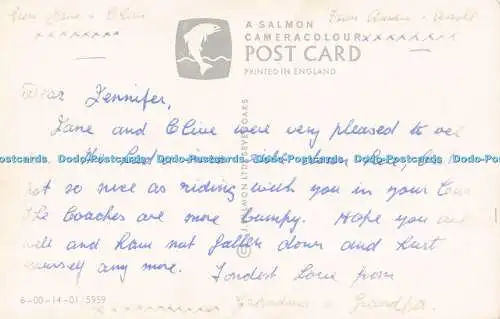 from Jane + Clive
A SALMON
CAMERACOLOUR
POST CARD
PRINTED IN ENGLAND
Dear Jennifer,
Jane and Clive were very pleased to
Dodo-Postcards Dodo-Postcards Dodo-Postcards Dodo-Postcards Dodo-Postcards
not so nice as riding with you in your
the Coaches are more bumpy. Hope you are
well and have not fallen down and hurt
yourself any more. Fondest Love from
Grandma + Grandpa.
6-00-14-01/5959
© J. SALMON LTD. SEVENOAKS